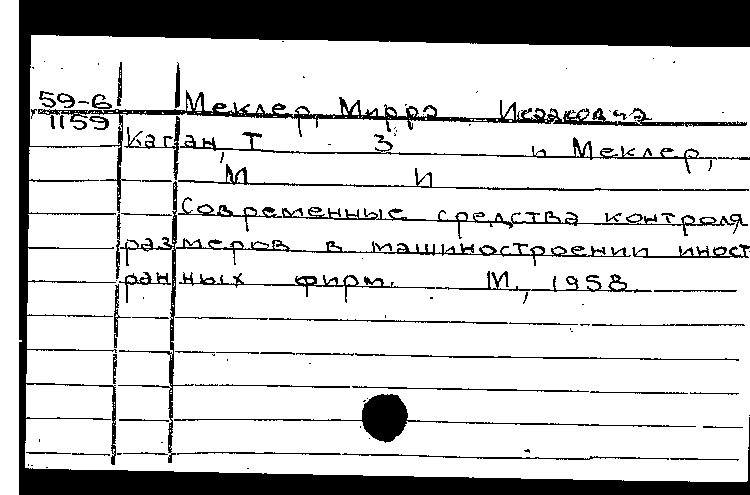 59-6 Меклер, Мирра Исааковна
1159
Каган, Т З и Меклер,
М И
Современные средства контроля
размеров в машиностроении иност
ранных фирм. М., 1958.